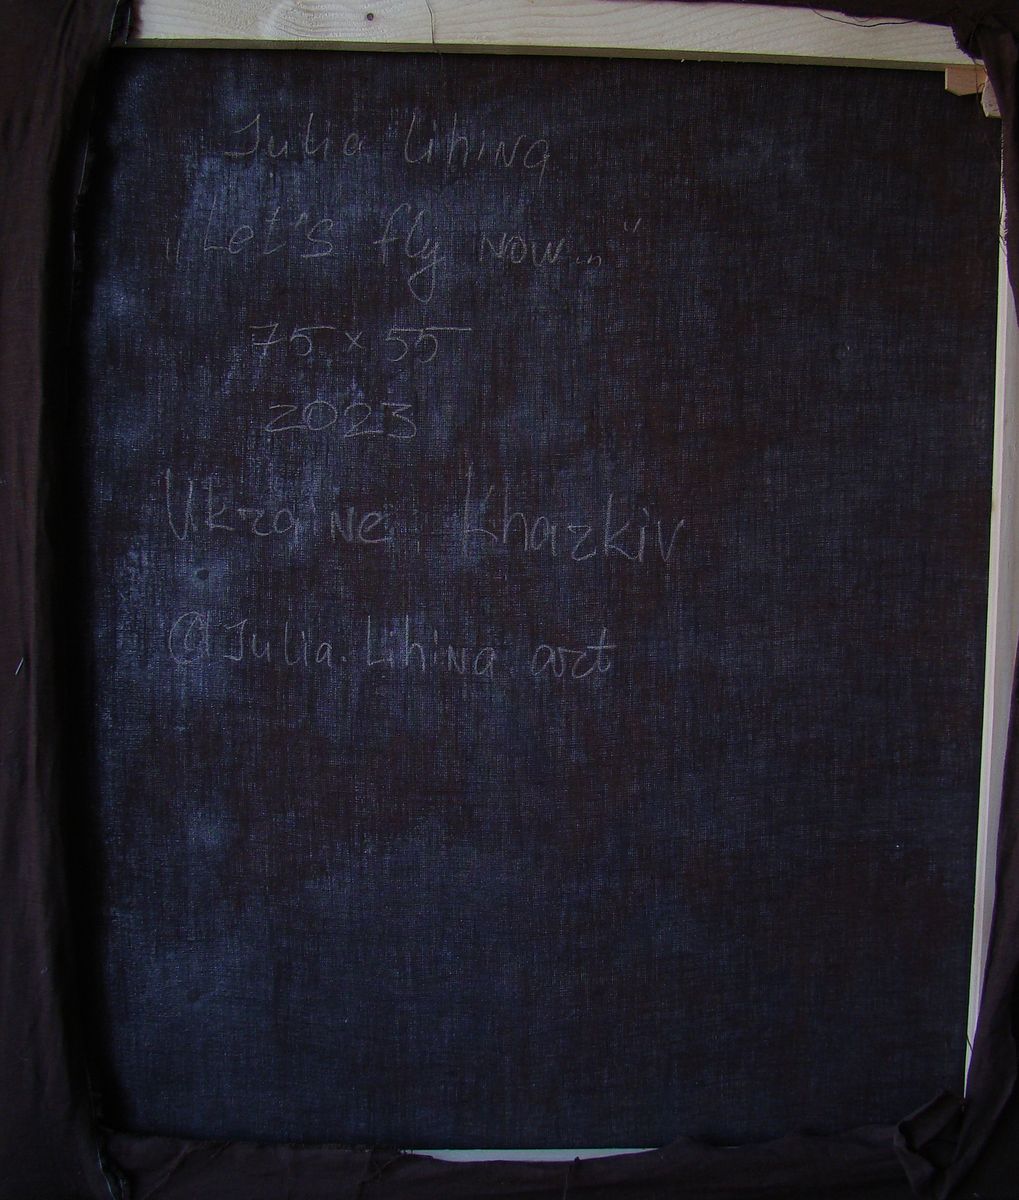 Julia Lihina
„Let's fly now..."
75 x 55
2023
Ukraine Kharkiv
©Julia.Lihina art